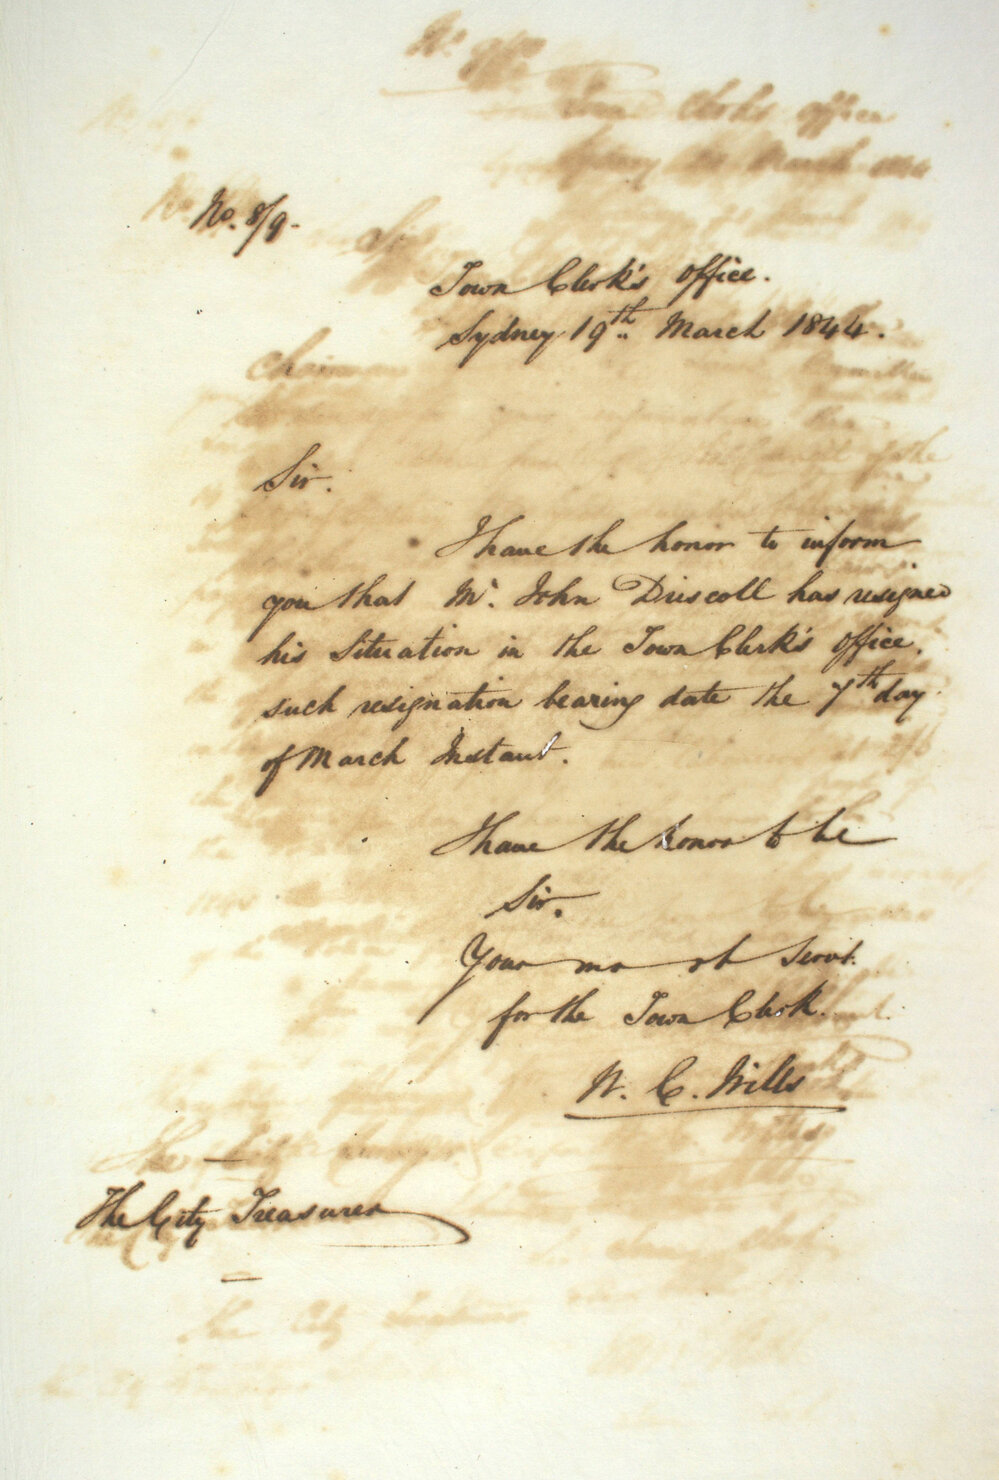 No. 8/9.
Town Clerk's Office.
Sydney 19th March 1844.
Sir.
I have the honor to inform
you that Mr. John Driscoll has resigned
his Situation in the Town Clerk's Office,
such resignation bearing date the 7th day
of March Instant.
I have the honor to be
Sir.
Your most Servt.
for the Town Clerk.
W. C. Wills
The City Treasurer